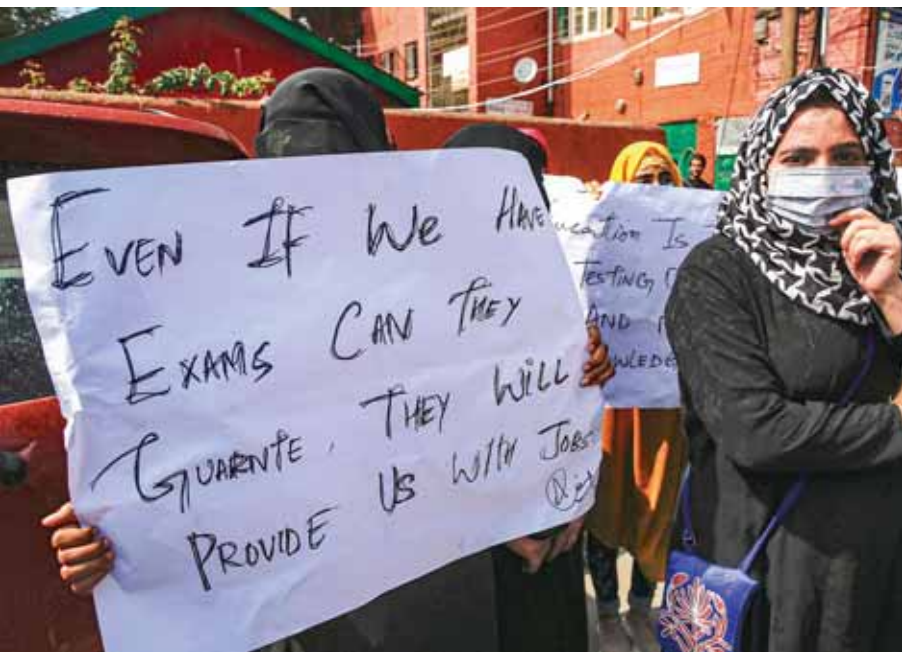 EVEN IF We HAVE
EXAMS CAN THEY
GUARNTE, THEY WILL
PROVIDE US WITH JOBS
ucation Is
TESTING
AND
WLEDE